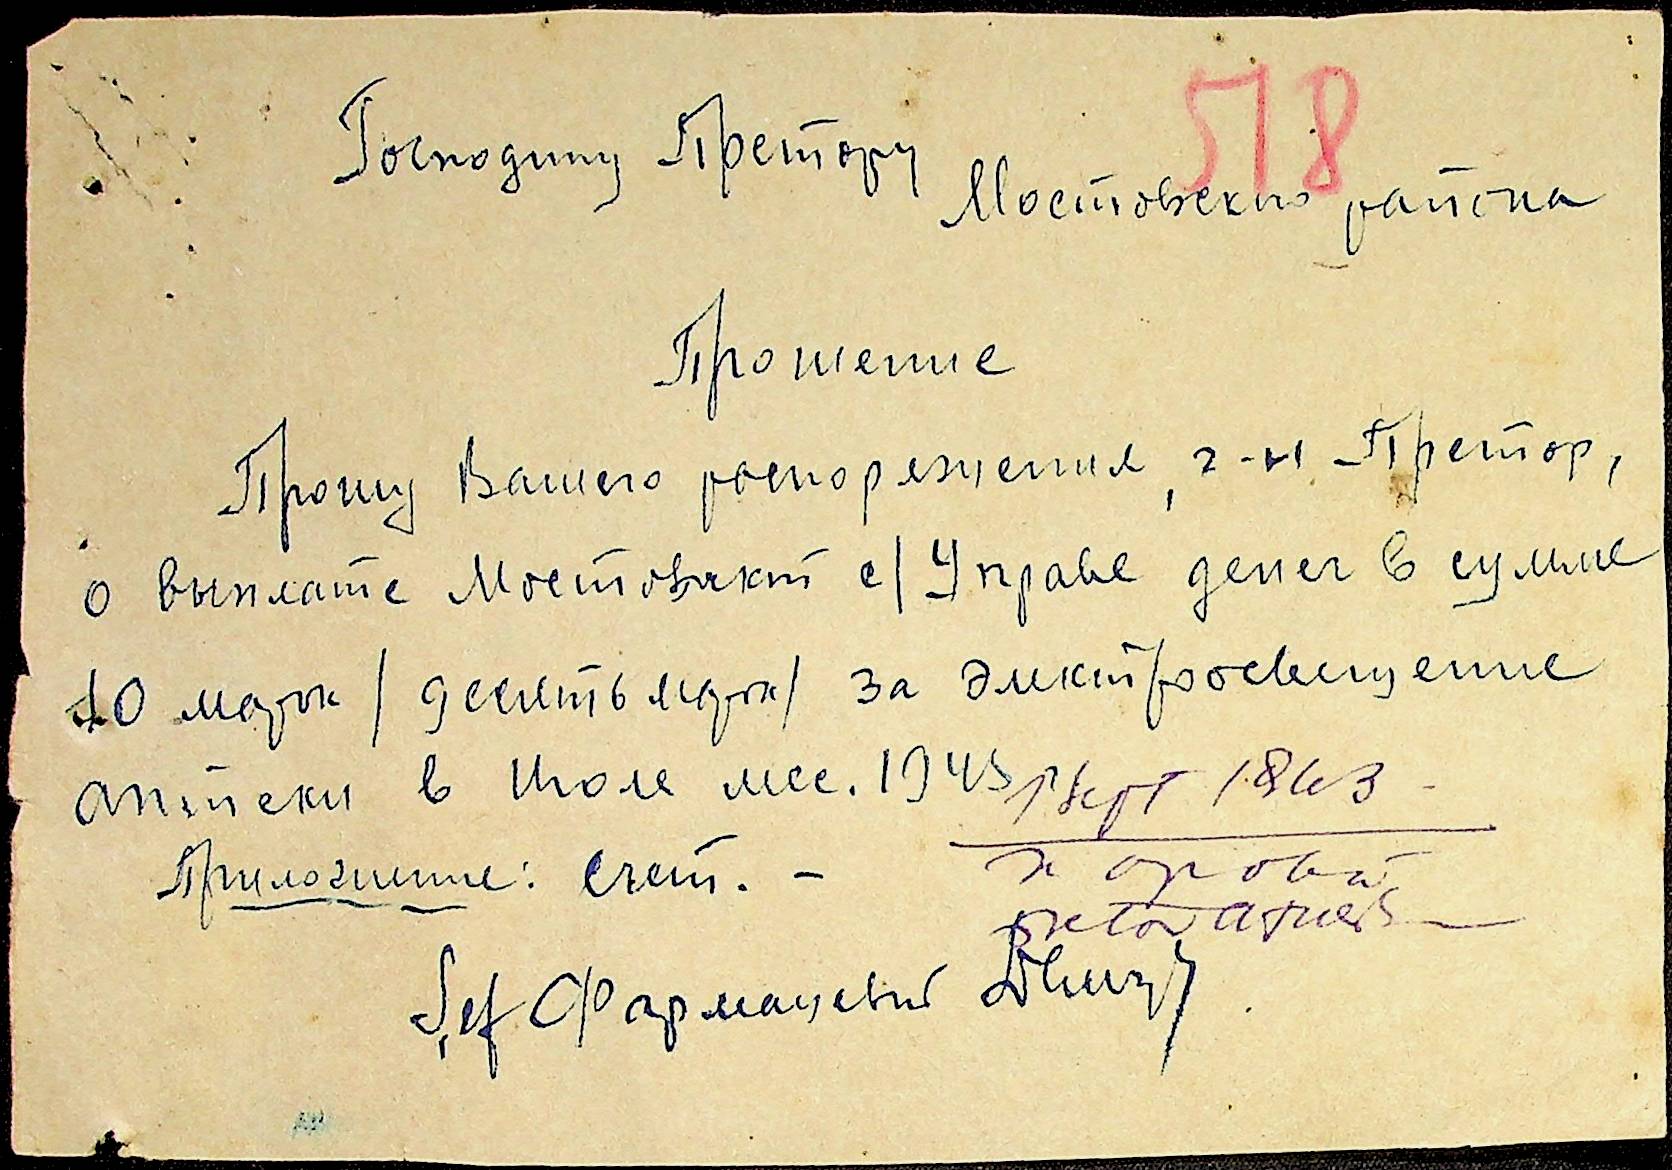 518
Господину Претору
Мостовского района
Прошение
Прошу Вашего распоряжения, г-н Претор,
о выплате Мостовской с/Управе денег в сумме
10 марок /десять марок/ за электроосвещение
аптеки в Июле мес. 1943 г.
Приложение: счет. –
Şef Фармацевт